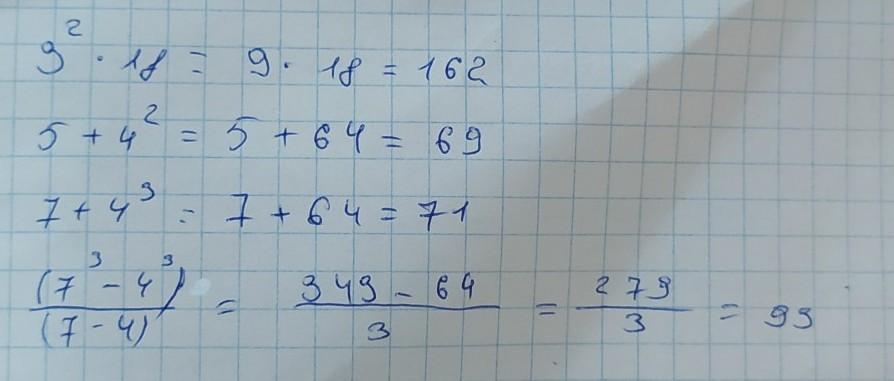 3² · 18 = 9 · 18 = 162
5 + 4² = 5 + 64 = 69
7 + 4³ = 7 + 64 = 71
(7³ - 4³)/(7 - 4) = (343 - 64)/3 = 279/3 = 93